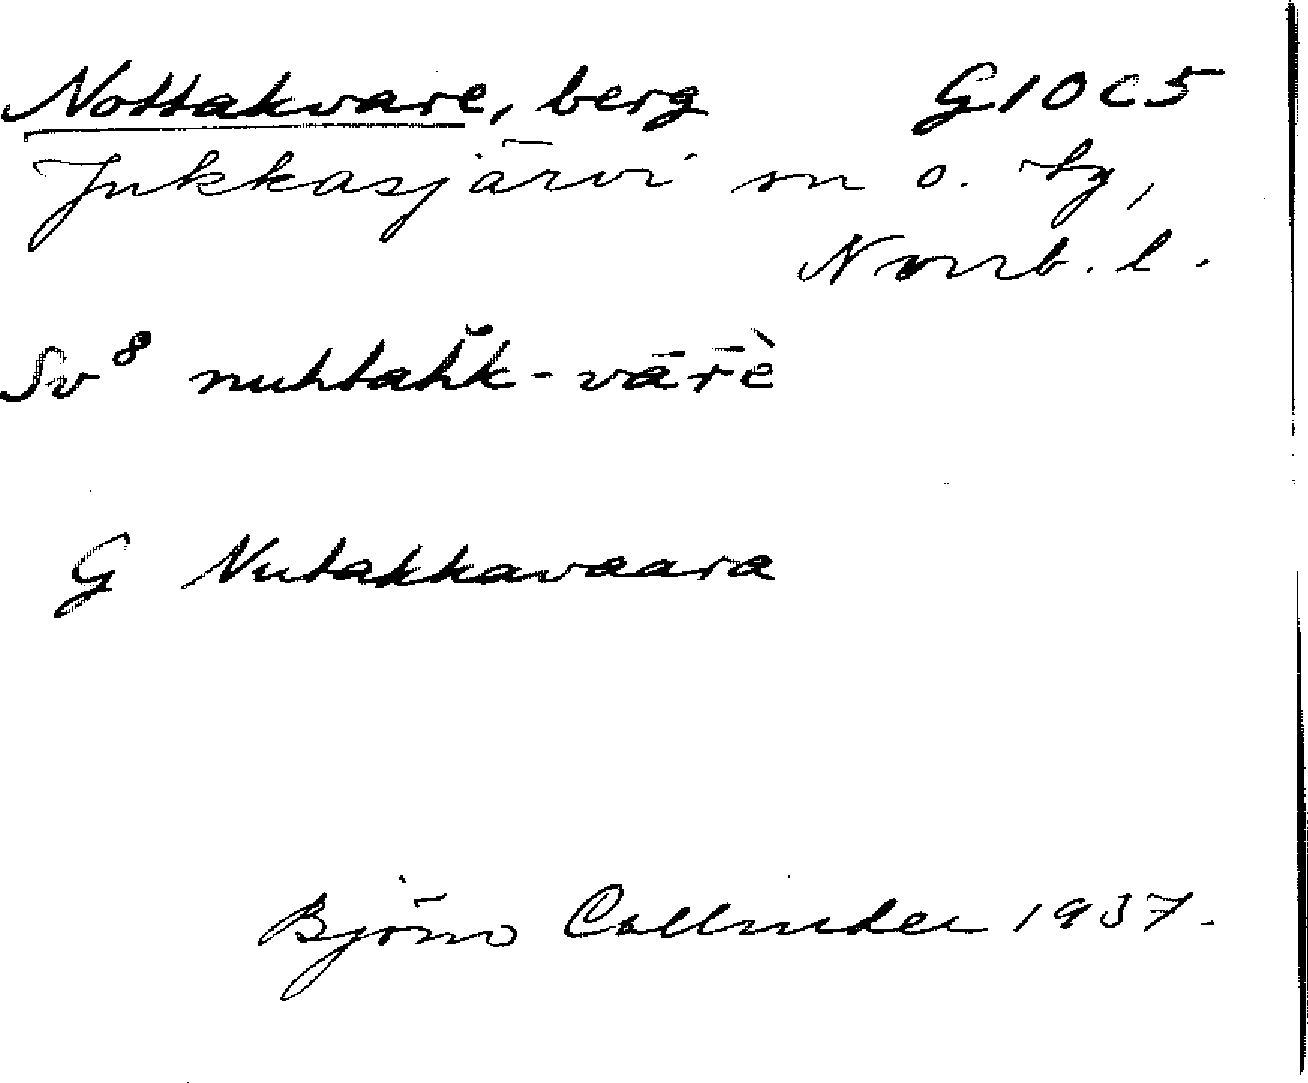 Nottakvare, berg G10C5
Jukkasjärvi sn o. tg,
Norrb. l.
Sv⁸ nuhtahk̆-vārḕ
G Nutakkavaara
Björn Collinder 1937.